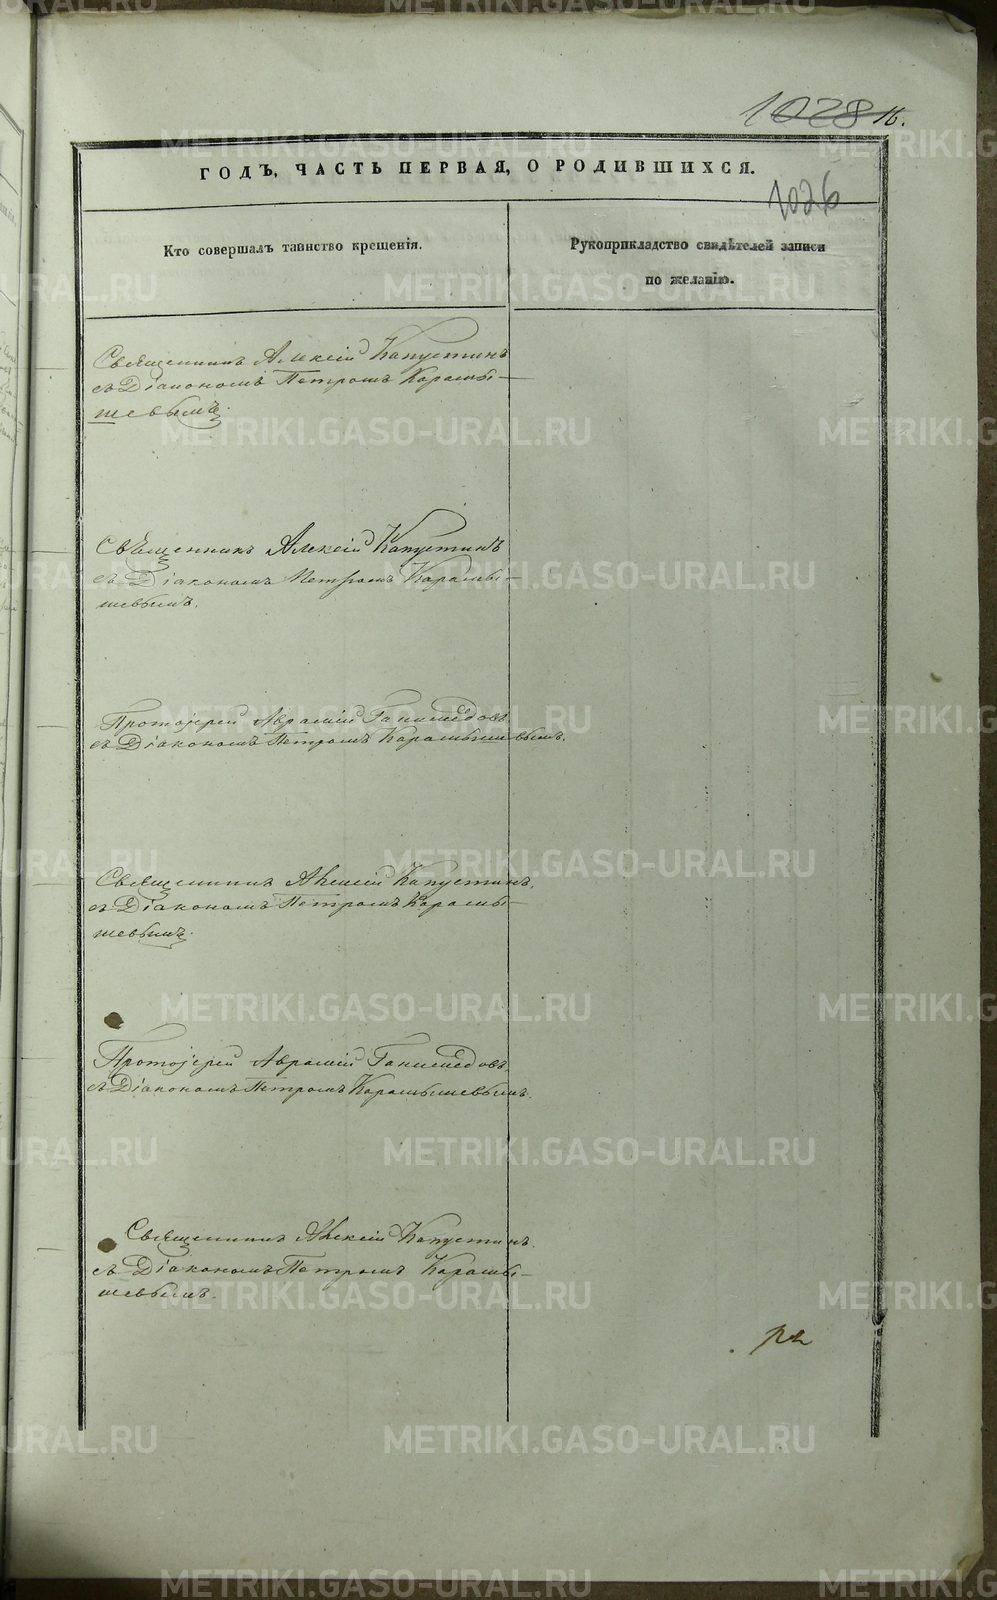 1028 16.
ГОДЪ, ЧАСТЬ ПЕРВАЯ, О РОДИВШИХСЯ.
1026
Кто совершалъ таинство крещенія.
Рукоприкладство свидѣтелей записи
по желанію.
Священникъ Алексій Капустинъ
съ Діакономъ Петромъ Карамы-
шевымъ.
Священникъ Алексій Капустинъ
съ Діакономъ Петромъ Карамы-
шевымъ.
Протоіерей Аврамій
съ Діакономъ Петромъ Карамышевымъ.
Священникъ Алексій Капустинъ,
съ Діакономъ Петромъ Карамы-
шевымъ.
Протоіерей Аврамій
съ Діакономъ Петромъ Карамышевымъ.
Священникъ Алексій Капустинъ
съ Діакономъ Петромъ Карамы-
шевымъ.
METRIKI.GASO-URAL.RU